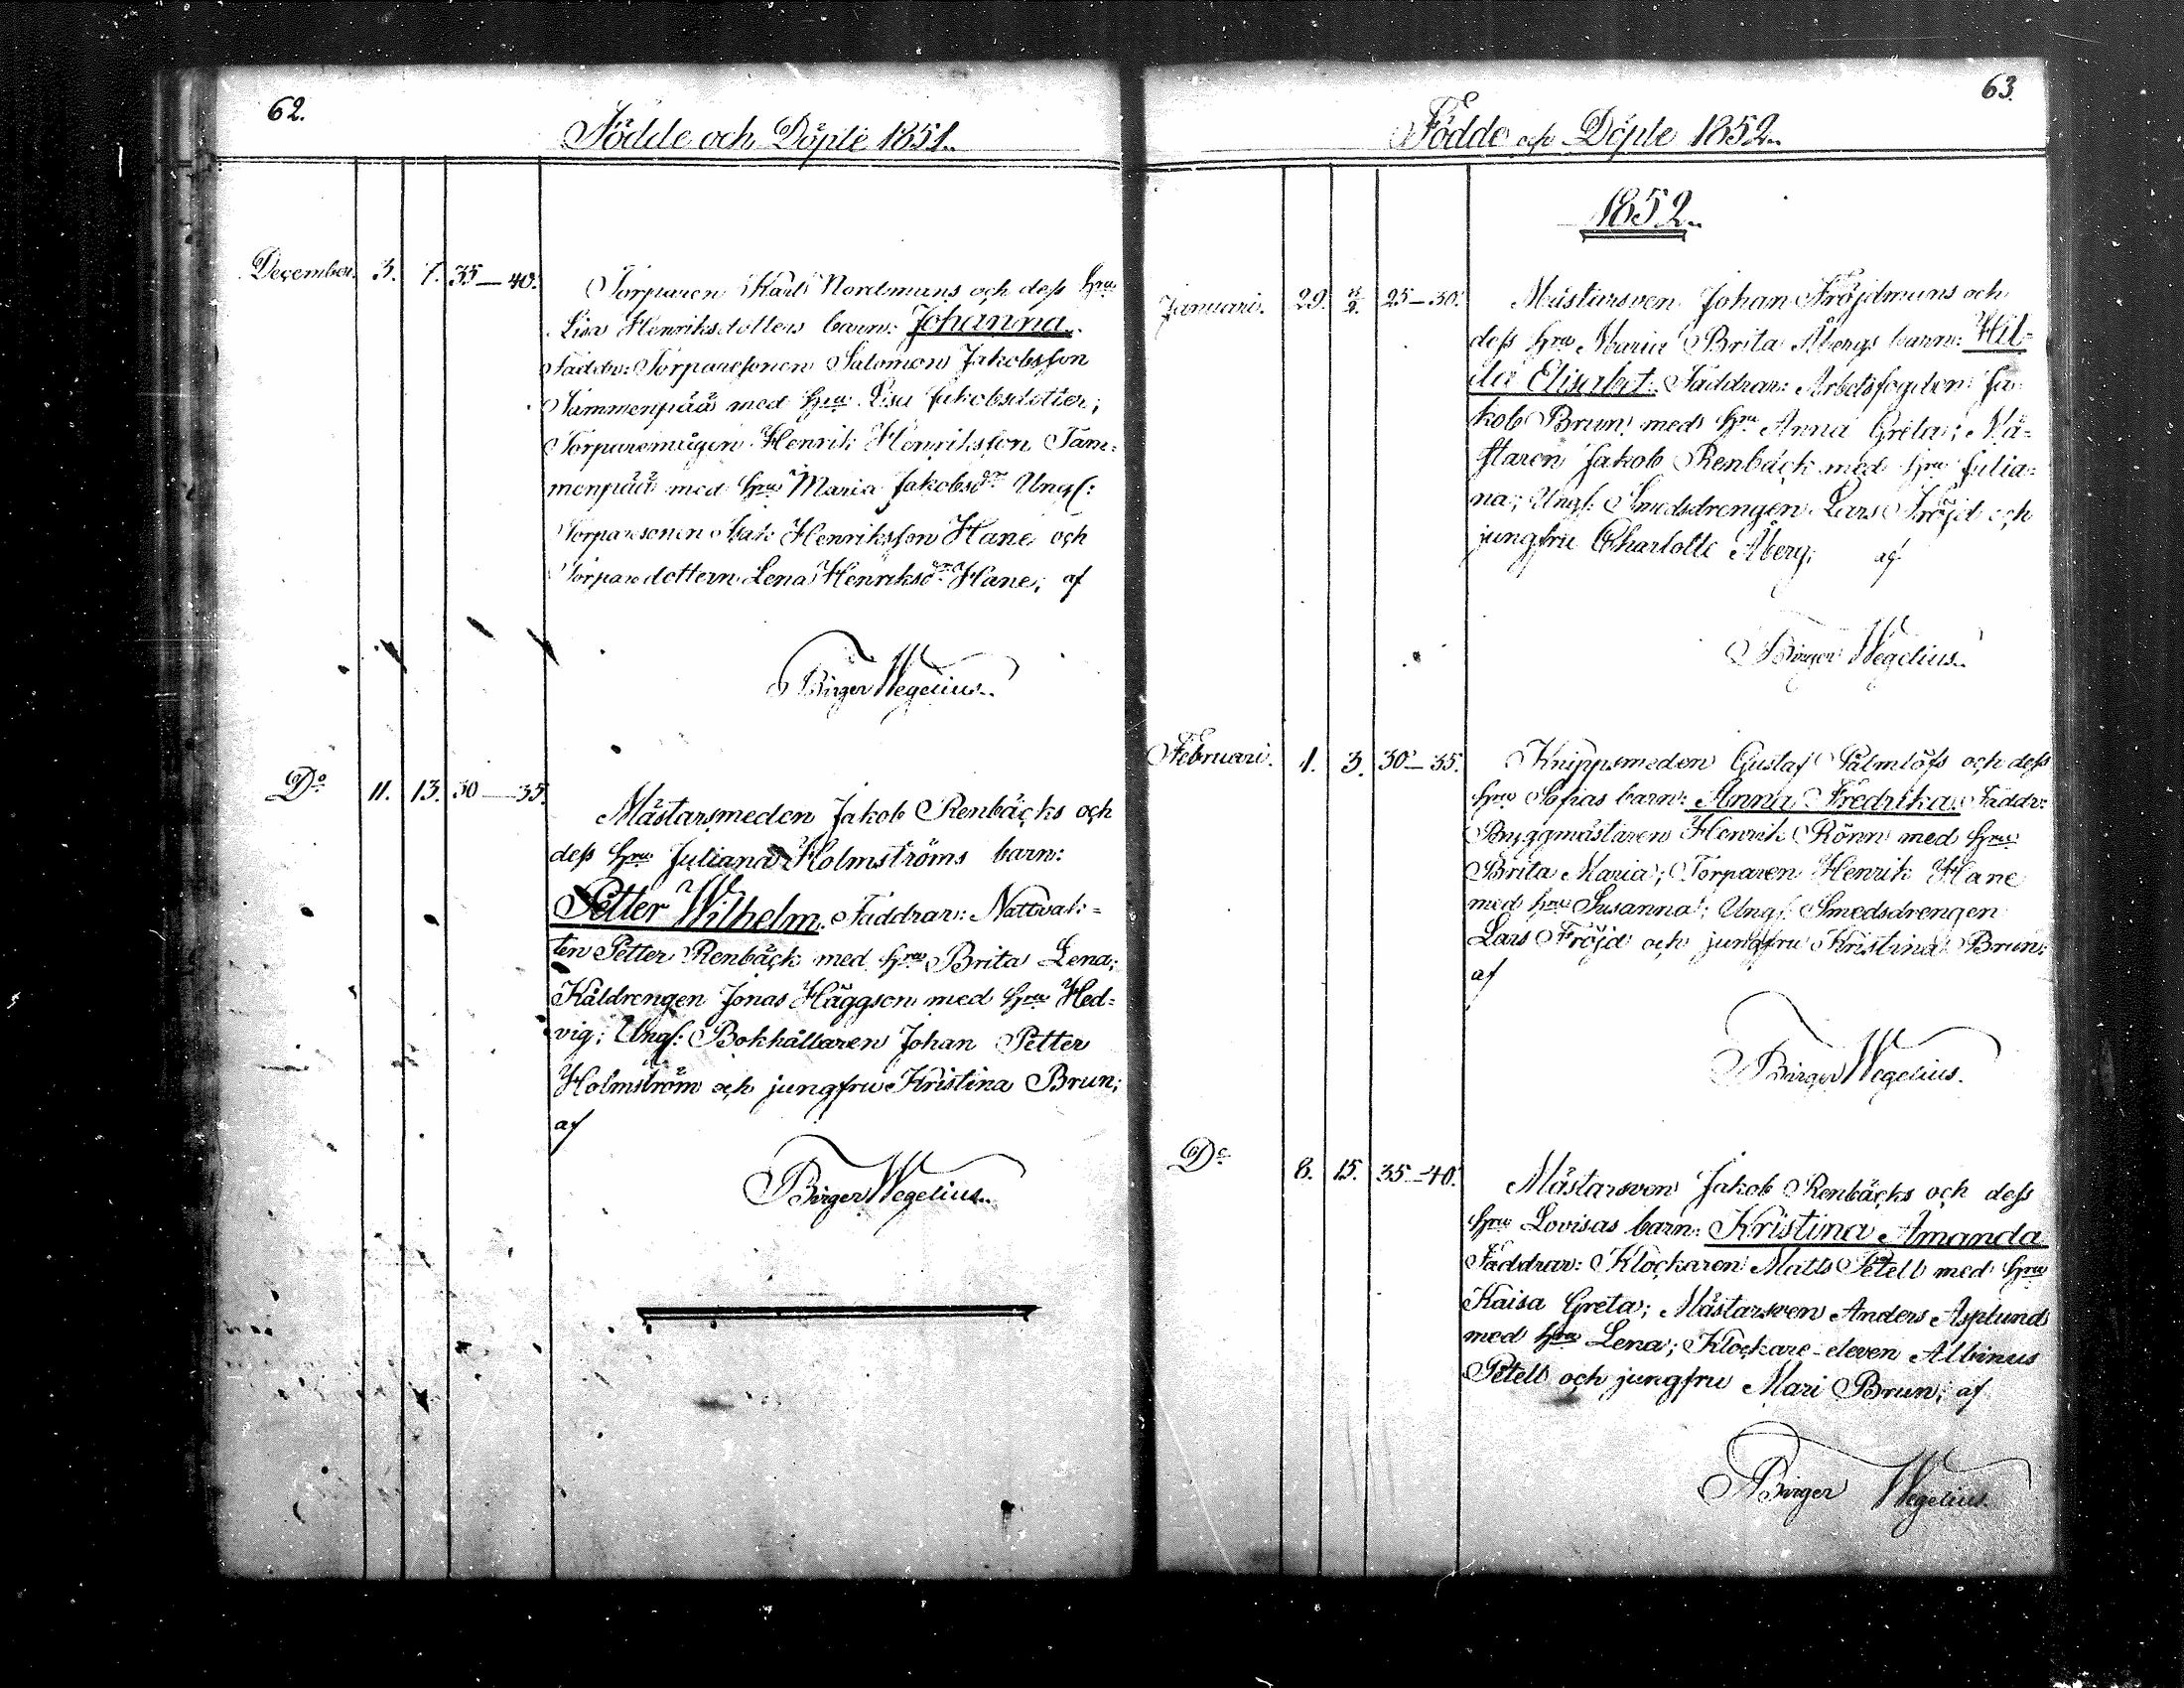 62.
Födde och Döpte 1851.
December. 3. 7. 35—40.
Torparen Karl Nordmans och dess hru
Lisa Henriksdotters barn: Johanna.
Faddr: Torparesonen Salomon Jakobsson
Tammenpää med hru Lisa Jakobsdotter;
Torparemågen Henrik Henriksson Tam-
menpää med hru Maria Jakobsdr Ungf:
Torparesonen Isak Henriksson Hane och
Torparedottern Lena Henriksdr Hane; af
Birger Wegelius.
Do 11. 13. 30—35.
Mästarsmeden Jakob Renbäcks och
dess hru Juliana Holmströms barn:
Petter Wilhelm. Faddrar: Nattvak-
ten Petter Renbäck med hru Brita Lena;
Kåldrengen Jonas Häggson med hru Hed-
vig; Ungf: Bokhållaren Johan Petter
Holmström och jungfru Kristina Brun;
af
Birger Wegelius.
63.
Födde och Döpte 1852.
1852.
Januari. 29. 8/2. 25—30.
Mästarsven Johan Fröjdmans och
dess hru Maria Brita Åbergs barn: Hil-
da Elisabet. Faddrar: Arbetsfogden Ja-
kob Brun med hru Anna Greta; Mä-
staren Jakob Renbäck med hru Julia-
na; Ungf: Smedsdrengen Lars Fröjd och
jungfru Charlotte Åberg; af
Birger Wegelius.
Februari. 1. 3. 30—35.
Knippsmeden Gustaf Palmlöfs och dess
hru Sofias barn: Anna Fredrika. Faddr:
Byggmästaren Henrik Rönn med hru
Brita Maria; Torparen Henrik Hane
med hru Susanna; Ungf: Smedsdrengen
Lars Fröjd och jungfru Kristina Brun;
af
Birger Wegelius.
Do 8. 15. 35—40.
Mästarsven Jakob Renbäcks och dess
hru Lovisas barn: Kristina Amanda
Faddrar: Klockaren Matts Petell med hru
Kaisa Greta; Mästarsven Anders Asplund
med hru Lena; Klockare-eleven Albinus
Petell och jungfru Mari Brun; af
Birger Wegelius.